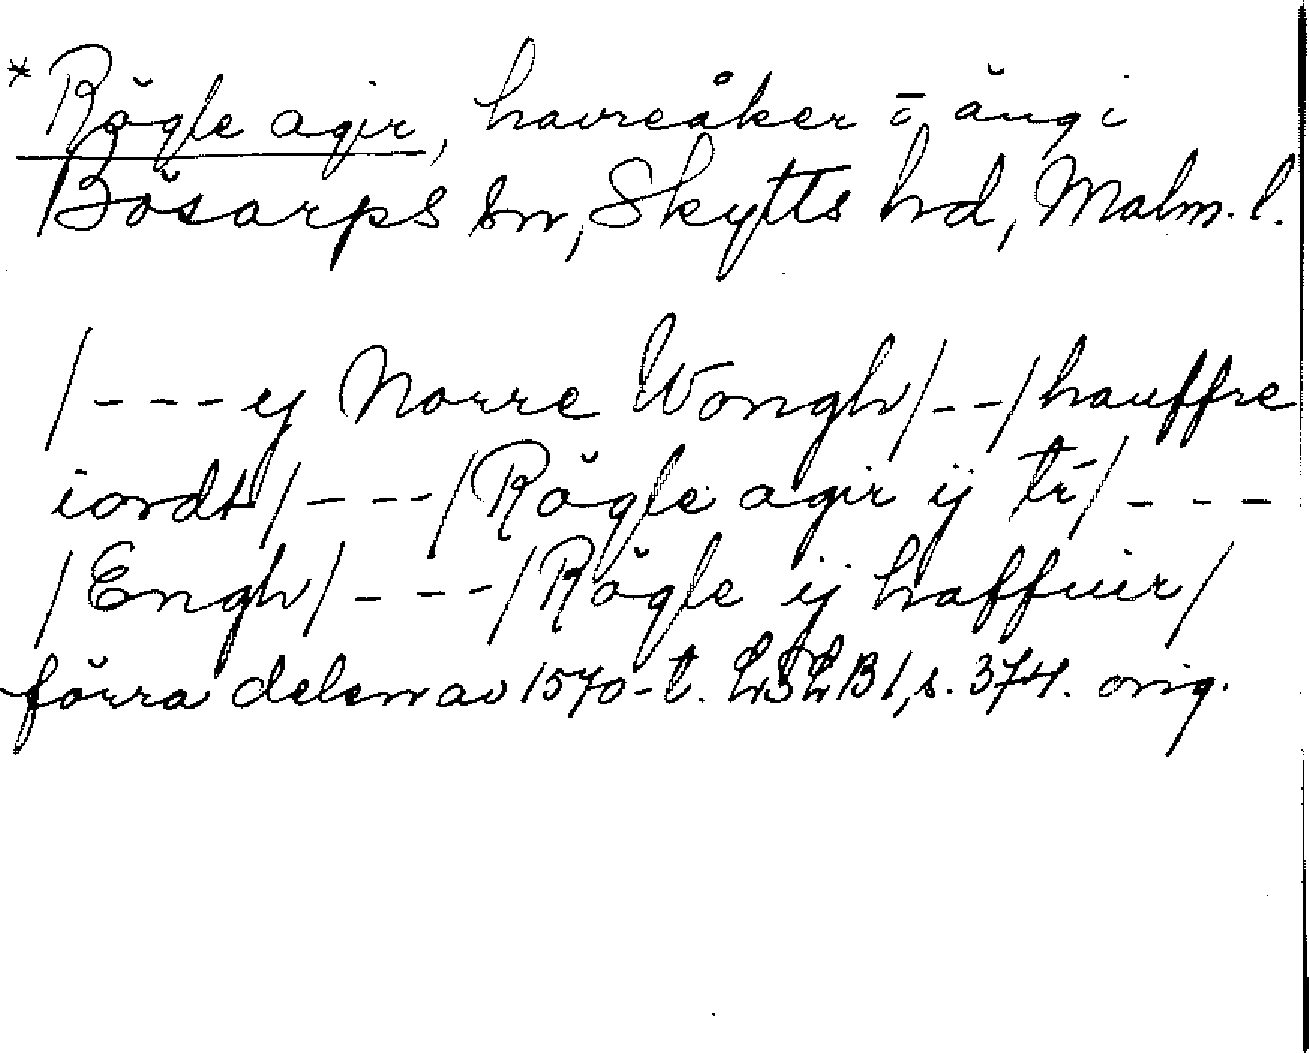 * Rögle agir, havreåker o äng i
Bösarps sn, Skytts hd, Malm. l.
/---ij Norre Wongh/--/hauffre
iordt/---/Rögle agir ij tr/---
/Engh/---/Rögle ij haffuir/
förra delen av 1570-t. LSLB1, s. 374. orig.